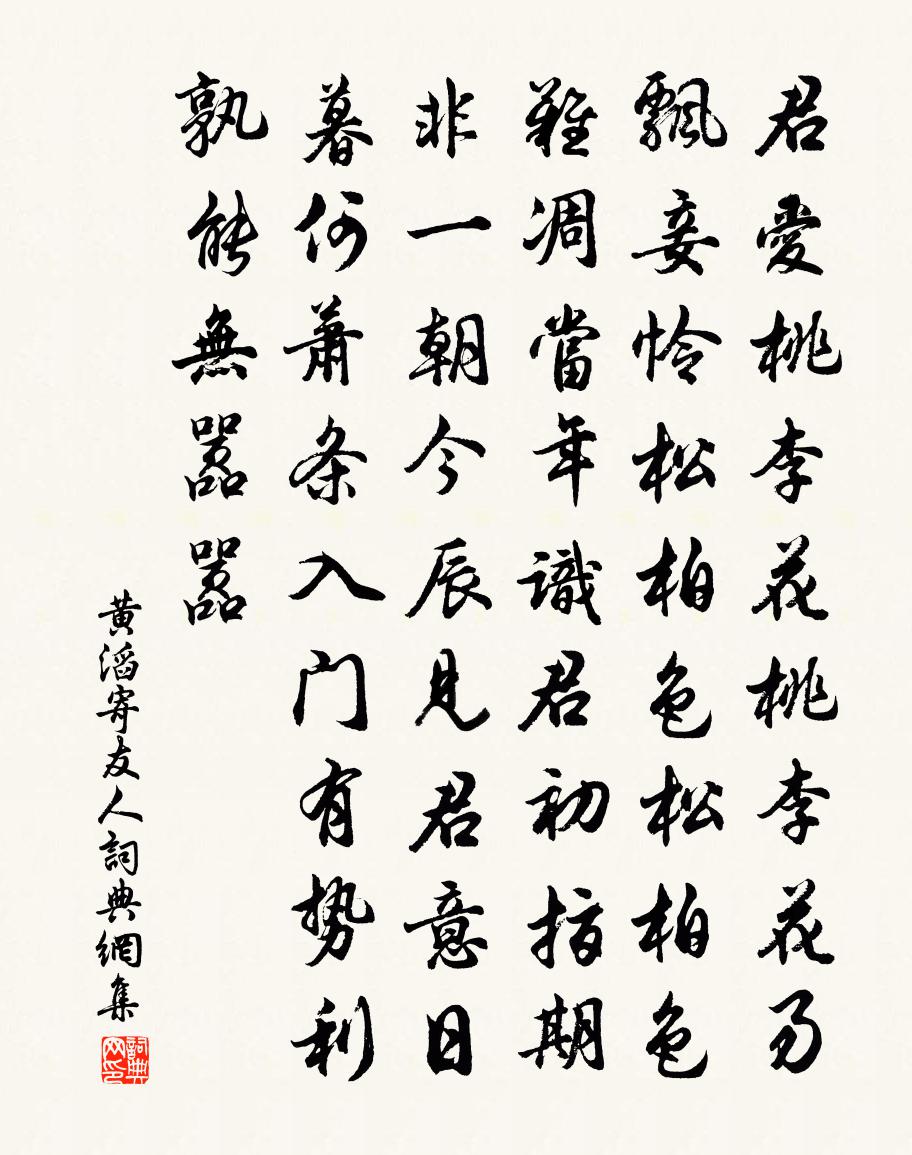 君愛桃李花桃李花易
飄妾怜松柏色松柏色
難凋當年識君初指期
非一朝今辰見君意日
暮何蕭条入門有势利
孰能無嚣嚣
黄滔寄友人詞典網集
詞典网印